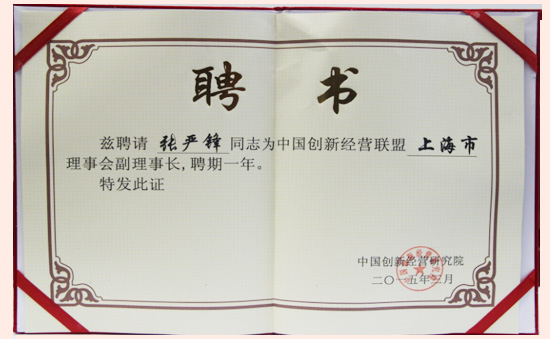 聘书
兹聘请 张严锋 同志为中国创新经营联盟 上海市
理事会副理事长,聘期一年。
特发此证
中国创新经营研究院
二〇一五年三月